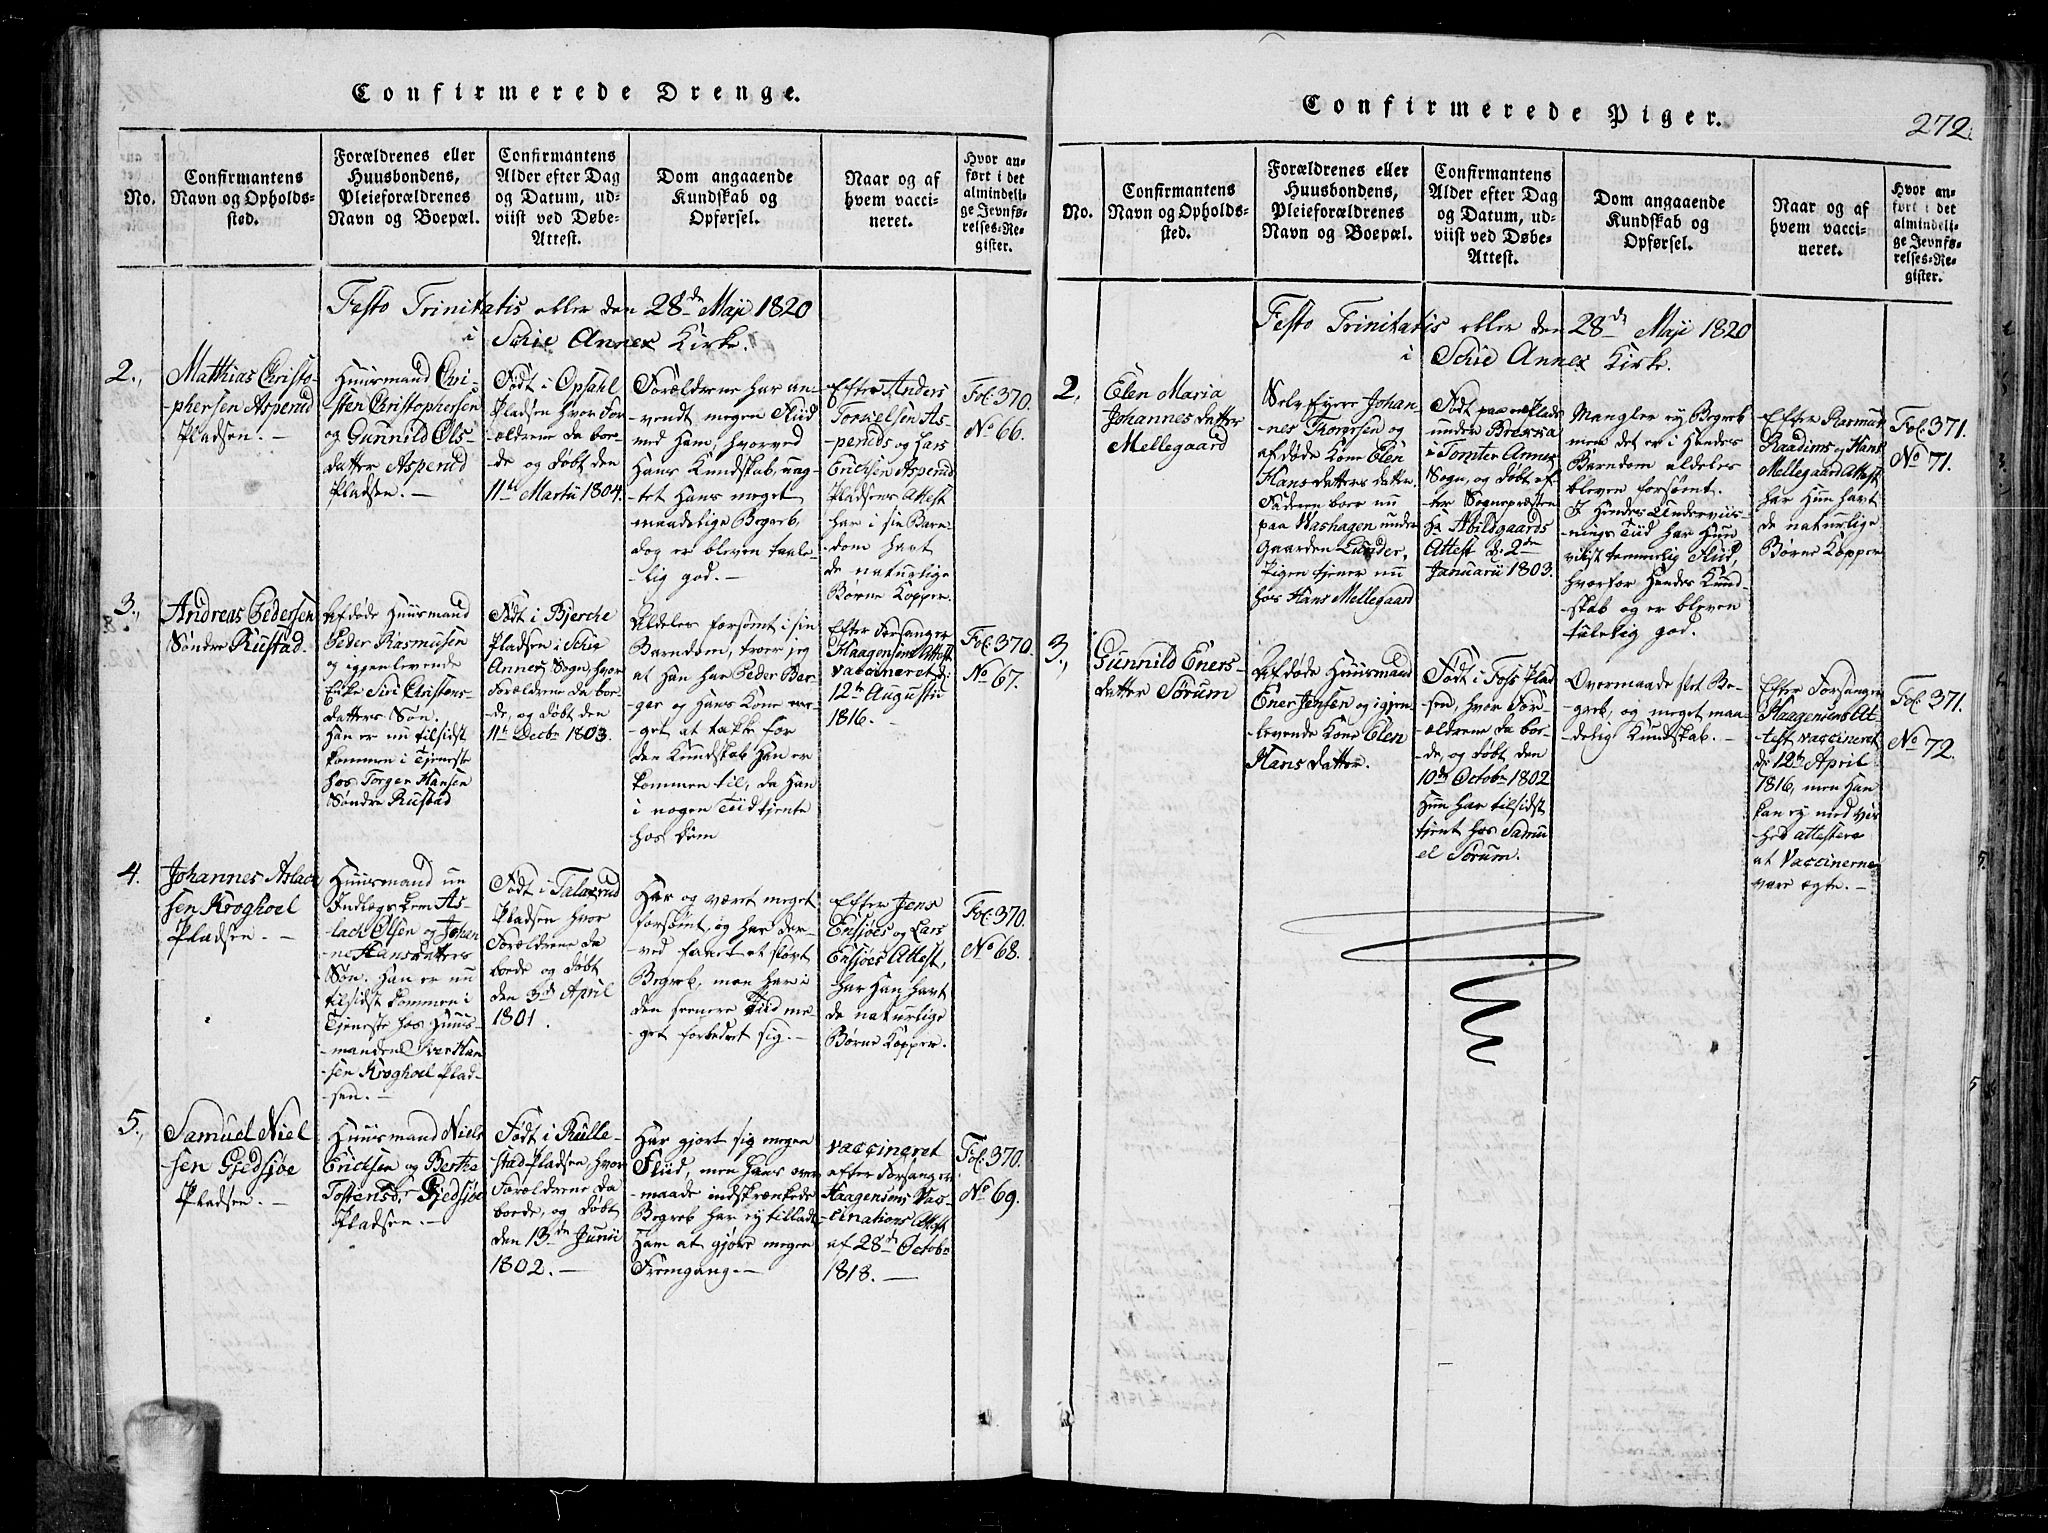 Confirmerede Drenge.
No.
Confirmantens
Navn og Opholds-
sted.
Forældrenes eller
Huusbondens,
Pleieforældrenes
Navn og Boepæl.
Confirmantens
Alder efter Dag
og Datum, ud-
viist ved Døbe-
Attest.
Dom angaaende
Kundskab og
Opførsel.
Naar og af
hvem vacci-
neret.
Hvor an-
ført i det
almindeli-
ge Jevnfø-
relses-Re-
gister.
Festo Trinitatis eller den 28de Maji 1820
i Schie Annex Kirke.
2.,
Mathias Christo-
phersen Asperud
Pladsen. -
Huusmand Chri-
sten Christophersen
og Gunnild Ols-
datter Asperud
Pladsen. -
Født i Opsahl
Pladsen hvor For-
ældrene da boe-
de og døbt den
11te Martii 1804.
Forældrene har an-
vendt megen Fliid
med Ham, hvorved
Hans Kundskab, uag-
tet Hans meget
maadelige Begreb,
dog er bleven taale-
lig god. -
Efter Anders
As-
peruds og Lars
Erichsen Asperud
Pladsens Attest
har i sin Barn-
dom havt
de naturlige
Børne Kopper.
Fol: 370.
No 66.
3.,
Andreas Pedersen
Søndre Rustad.
Afdøde Huusmand
Peder Rasmusen
og igjenlevende
Enke Siri Christens-
datters Søn.
Han er nu tilsidst
kommen i Tjeneste
hos Torger Hansen
Søndre Rustad
Født i Bjerche
Pladsen i Schie
Annex Sogn, hvor
Forældrene da boe-
de, og døbt den
11te Decbr 1803.
Aldeles forsømt i sin
Barndom, troer jeg
at Han har Peder Ber-
ger og Hans Kone me-
get at takke for
den Kundskab Han er
kommen til, da Han
i nogen Tiid tjente
hos dem
Efter Forsanger
Haagensens Attest
vaccineret d:
12te Augustii
1816. -
Fol: 370.
No 67.
4.
Johannes Aslach-
sen Kroghoel
Pladsen. -
Huusmand
As-
lach Olsen og Johan-
ne Hansdatters
Søn. Han er nu
tilsidst kommen i
Tjeneste hos Huus-
manden Iver Han-
sen Kroghoel Plad-
sen. -
Født i Talerud
Pladsen hvor
Forældrene da
boede og døbt
den 3de April
1801.
Har og været meget
forsømt, og har der-
ved faaet et slövt
Begreb, men har i
den senere Tiid me-
get forbedret sig. -
Efter Jens
Ensjøes og Lars
Ensjøes Attest,
har Han havt
de naturlige
Børne Kopper.
Fol: 370.
No 68.
5.,
Samuel Niel-
sen Gjedsjøe
Pladsen. -
Huusmand Niels
Erichsen og Berthe
Gjedsjøe
Pladsen. -
Født i Rulle-
stad Pladsen, hvor
Forældrene da
boede, og døbt
den 13de Junii
1802. -
Har gjort sig megen
Fliid, men Hans over-
maade indskrænkede
Begreb har ej tilladt
Ham at gjøre megen
Fremgang. -
vaccineret
efter Forsanger
Haagensens Vac-
cinations Attest
af 28de Octobr
1818. -
Fol: 370.
No 69.
Confirmerede Piger.
272.
No.
Confirmantens
Navn og Opholds-
sted.
Forældrenes eller
Huusbondens,
Pleieforældrenes
Navn og Boepæl.
Confirmantens
Alder efter Dag
og Datum, ud-
viist ved Døbe-
Attest.
Dom angaaende
Kundskab og
Opførsel.
Naar og af
hvem vacci-
neret.
Hvor an-
ført i det
almindeli-
ge Jevnfø-
relses-Re-
gister.
Festo Trinitatis eller den 28de Maji 1820
i Schie Annex Kirke.
2,
Elen Maria
Johannes datter
Mellegaard
Selv Eyere Johan-
nes Thoresen og
afdøde Kone Elen
Hansdatters datter.
Faderen boer nu
paa Washagen under
Gaarden Lunder,
Pigen tjener nu
hos Hans Mellegaard
Født paa en Plads
under Brevia
i Tomter Annex
Sogn, og døbt ef-
ter Sognepræsten
Hr Abildgaards
Attest d: 2den
Januarii 1803.
Mangler ej Begreb
men det er i Hendes
Barndom aldeles
bleven forsømt.
I Hendes Underviis-
nings Tiid har Hun
viist temmelig Fliid,
hvorfor Hendes Kund-
skab og er bleven
taalelig god.
Efter Rasmus
og Hans
Mellegaard Attest
har Hun havt
de naturlige
Børne Kopper
Fol: 371.
No 71.
3.,
Gunnild Eners-
datter Sørum
Afdøde Huusmand
Ener Jensen og igjen-
levende Kone Elen
Hans datter.
Født i Foss Plad-
sen, hvor For-
ældrene da boe-
de, og døbt den
10de Octobr 1802
Hun har tilsidst
tjent hos Samu-
el Sørum.
Overmaade slet Be-
greb, og meget maa-
delig Kundskab. -
Efter Forsanger
Haagensens At-
test vaccineret
d: 12te April
1816, men Han
kan ej med Vis-
hed attestere
at Vaccinerne
vare ægte. -
Fol: 371.
No 72.